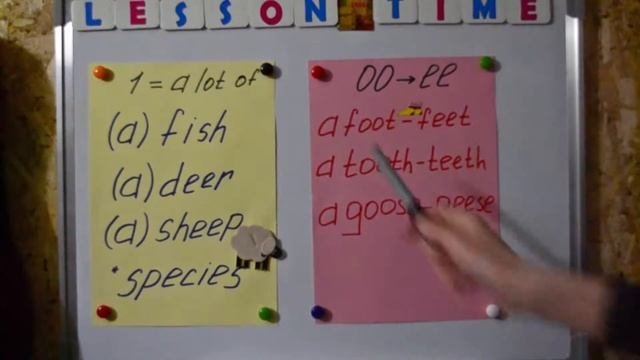 LESSON TIME
1 = a lot of
(a) fish
(a) deer
(a) sheep
*species
OO→ee
a foot-feet
a tooth-teeth
a goose-geese